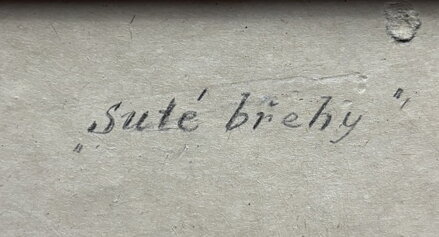 „Suté břehy"